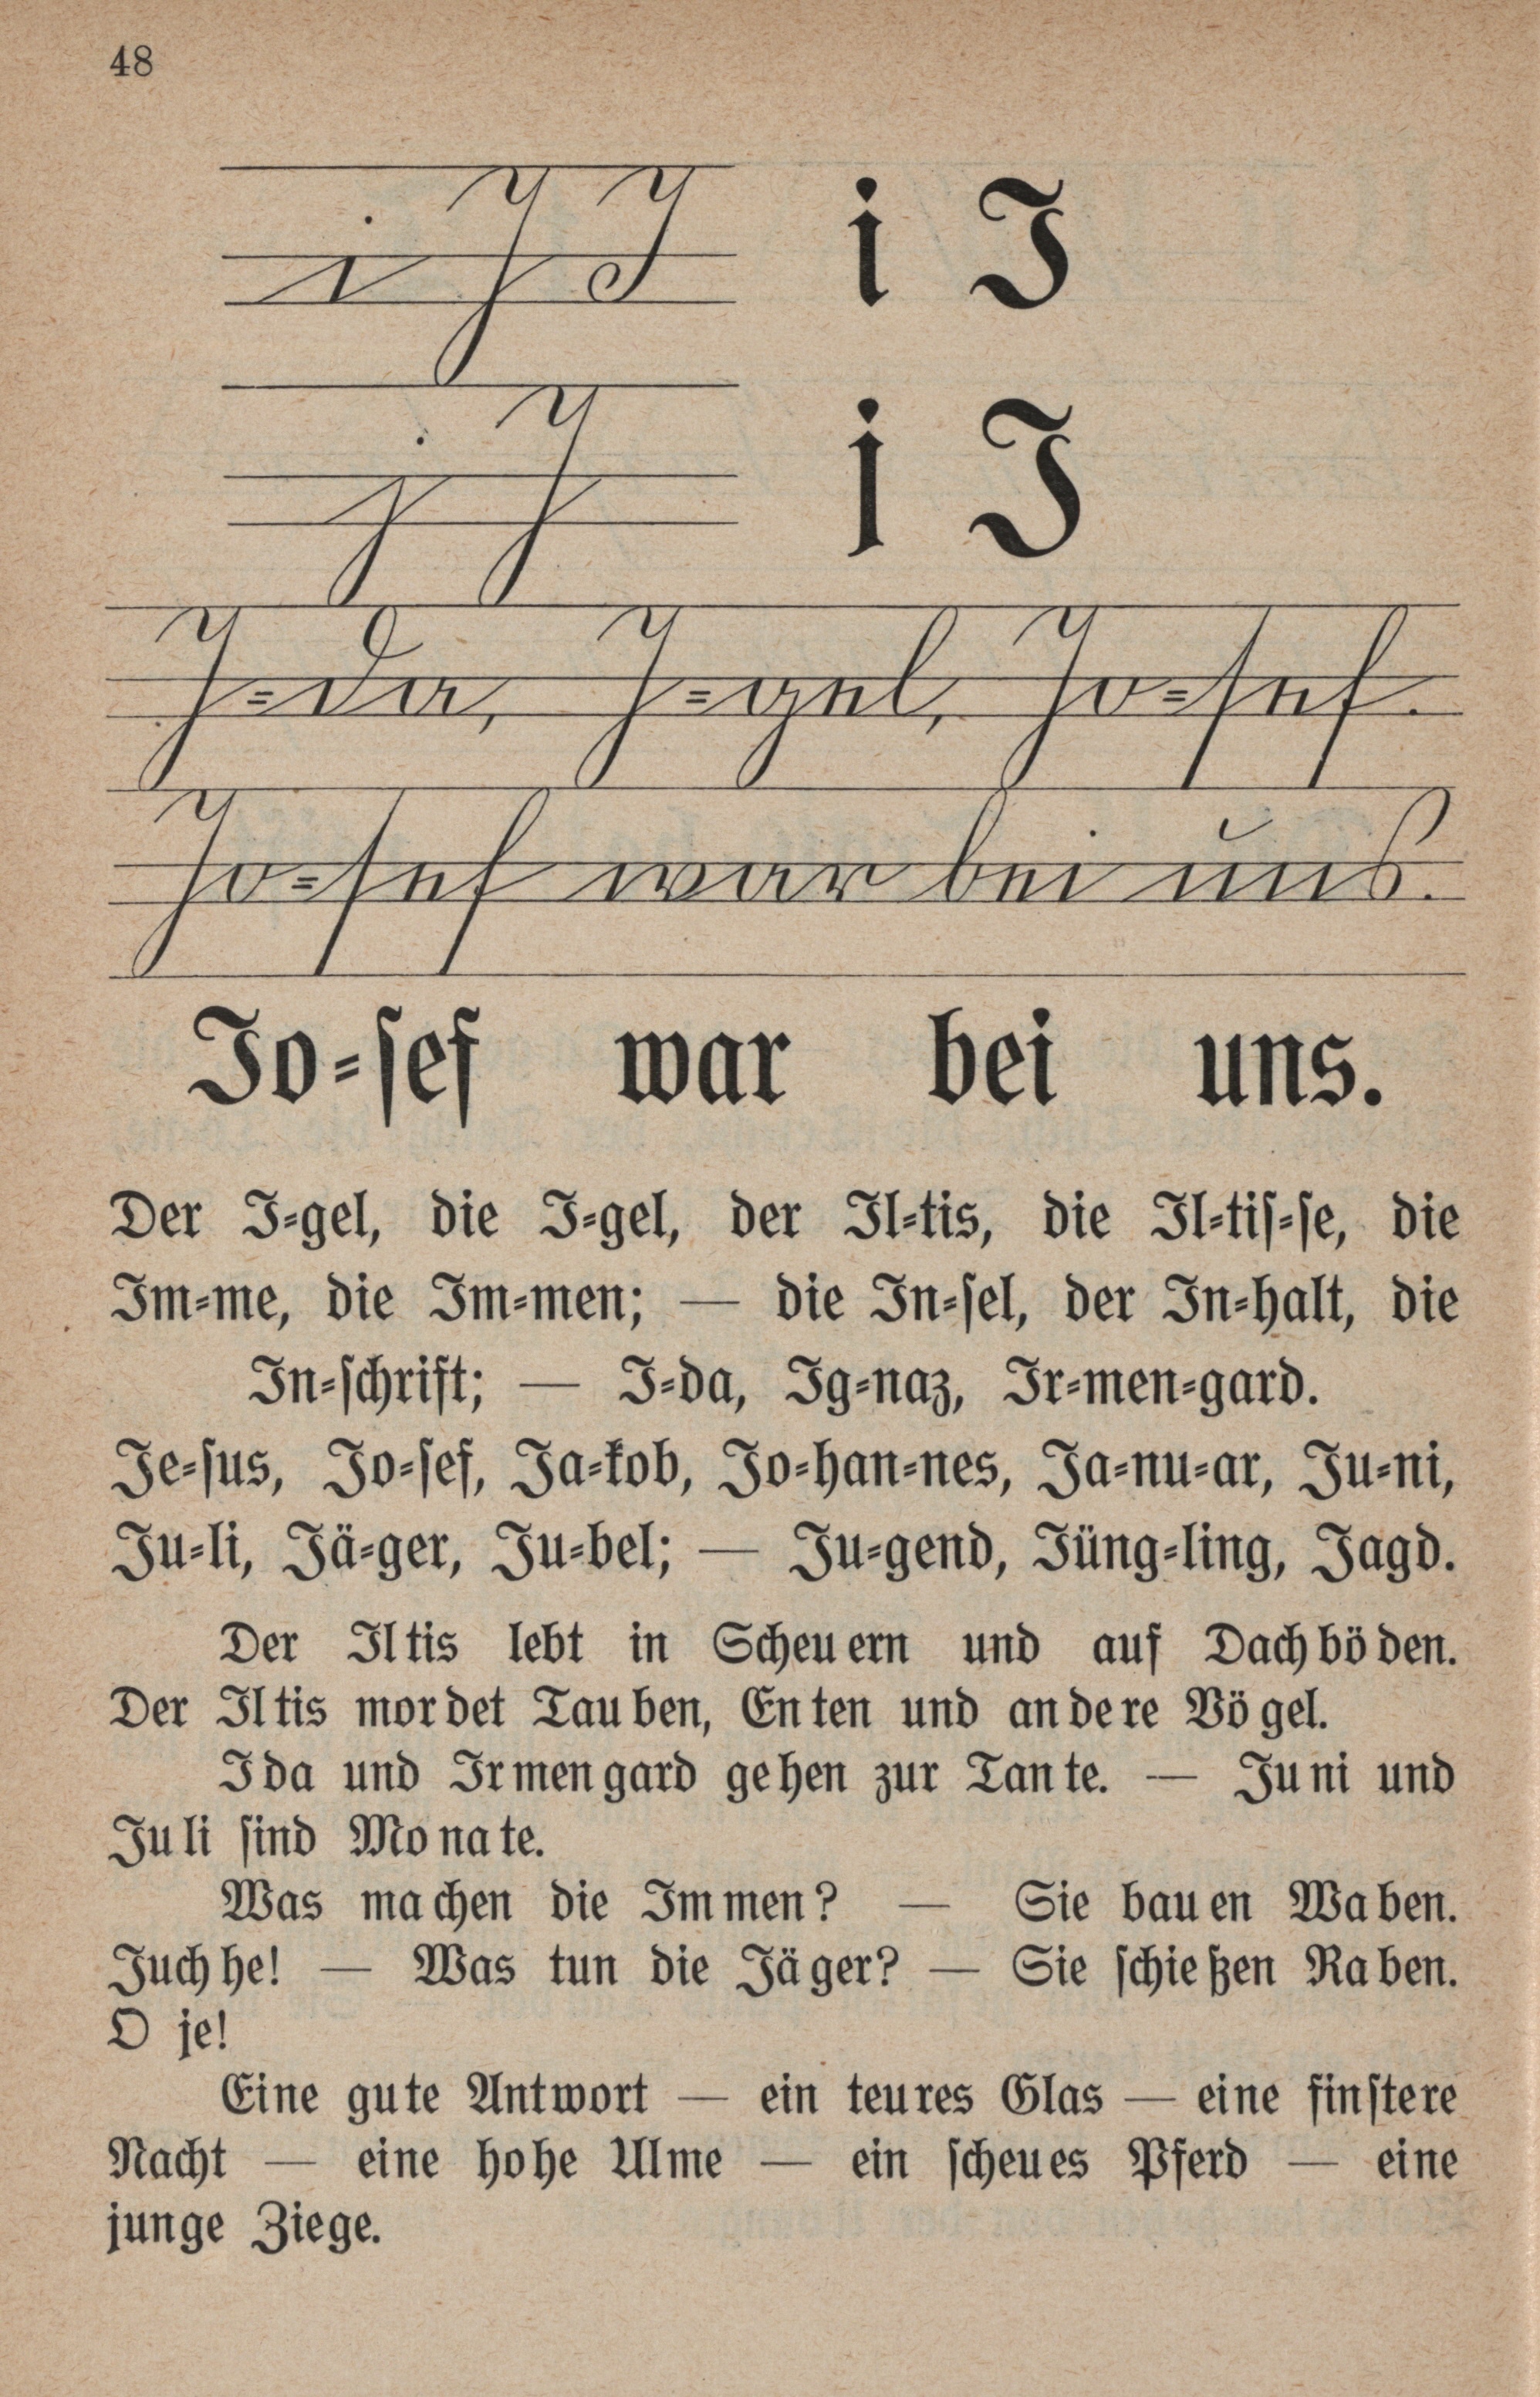 48
i I J i I
j J j J
I=da, I=gel, Jo=sef.
Jo=sef war bei uns.
Jo=ſef war bei uns.
Der I=gel, die I=gel, der Il=tis, die Il=tiſ=ſe, die
Im=me, die Im=men; — die In=ſel, der In=halt, die
In=ſchrift; — I=da, Ig=naz, Ir=men=gard.
Je=ſus, Jo=ſef, Ja=kob, Jo=han=nes, Ja=nu=ar, Ju=ni,
Ju=li, Jä=ger, Ju=bel; — Ju=gend, Jüng=ling, Jagd.
Der Il tis lebt in Scheu ern und auf Dach bö den.
Der Il tis mor det Tau ben, En ten und an de re Vö gel.
I da und Ir men gard ge hen zur Tan te. — Ju ni und
Ju li ſind Mo na te.
Was ma chen die Im men? — Sie bau en Wa ben.
Juch he! — Was tun die Jä ger? — Sie ſchie ßen Ra ben.
O je!
Eine gu te Antwort — ein teu res Glas — eine finſtere
Nacht — eine ho he Ulme — ein ſcheu es Pferd — eine
junge Ziege.